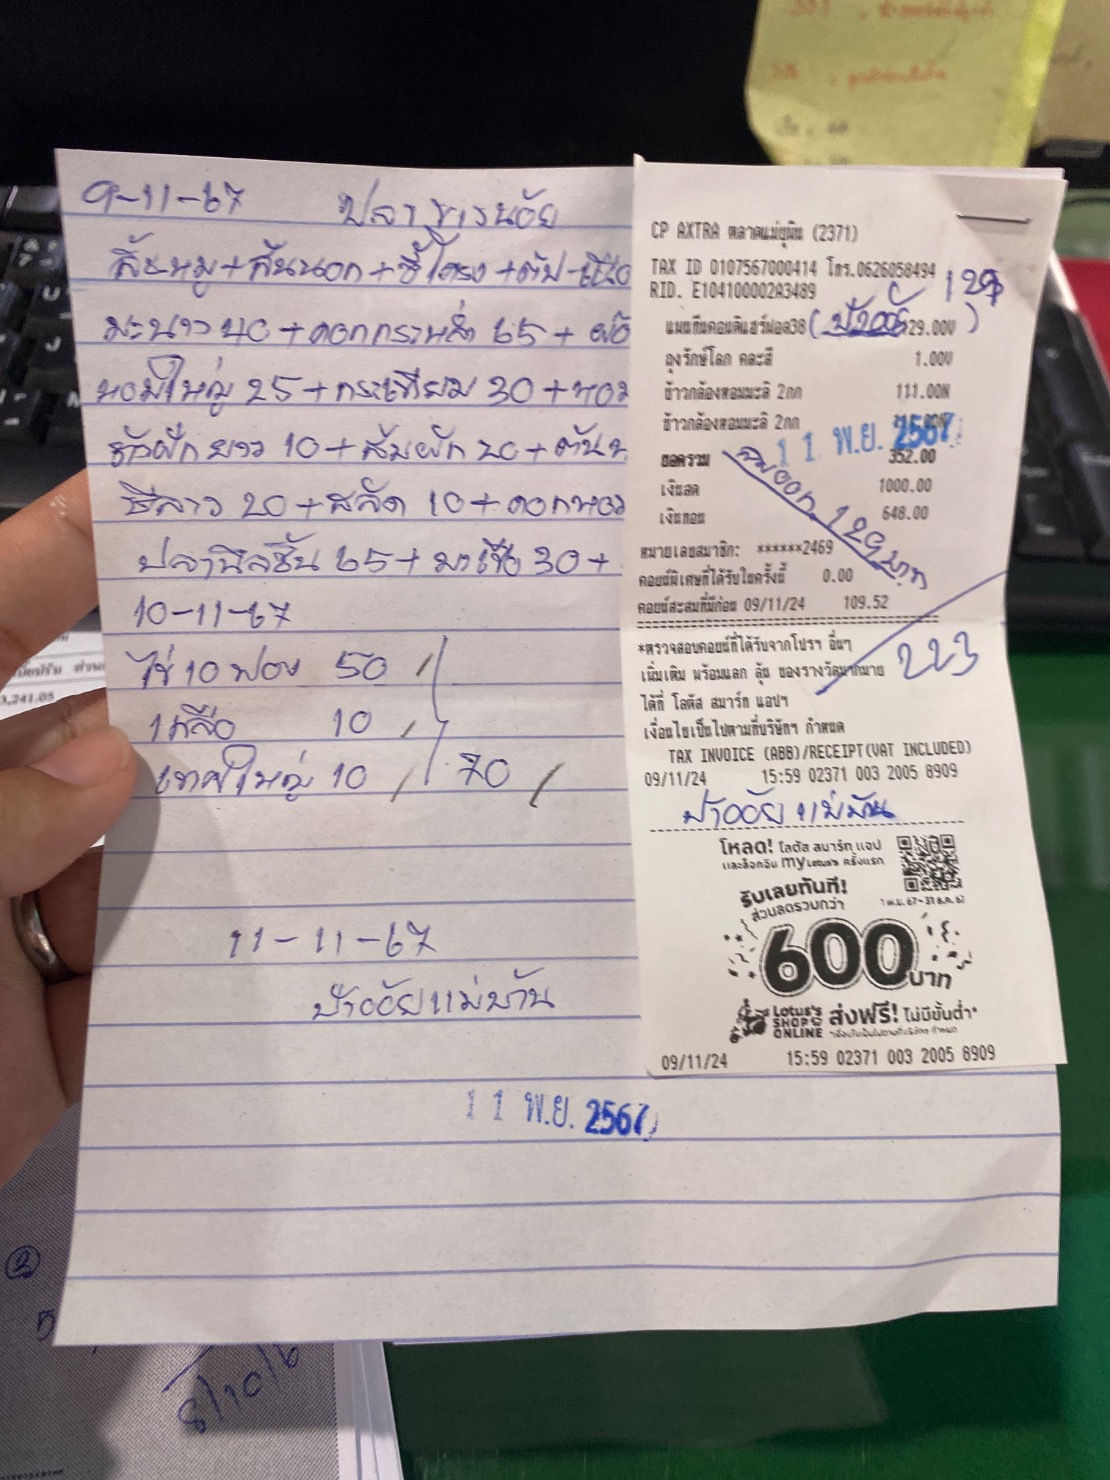 9-11-67 ปลาขาวน้อย
สันนอก+ซี่โครง+ตับ
มะนาว 40+ดอกกะหล่ำ 65+
หอมใหญ่ 25+กระเทียม 30+หอม
ถั่วฝักยาว 10+ส้มผัก 20+ต้น
ชีลาว 20+สลัด 10+ดอกหอม
ปลานิลชิ้น 65+มะเขือ 30+
10-11-67
ไข่ 10 ฟอง 50
เกลือ 10
10 70
11-11-67
ป้าอ้อยแม่บ้าน
11 พ.ย. 2567
CP AXTRA ตลาดแม่ยุพิน (2371)
TAX ID 0107567000414 โทร.0626058494
RID. E104100002A3489
129
แพนทีนคอนดิเชอร์ฟอล38 (ป้าอ้อย) 29.00V
ถุงรักษ์โลก คละสี 1.00V
ข้าวกล้องหอมมะลิ 2กก 111.00N
ข้าวกล้องหอมมะลิ 2กก
11 พ.ย. 2567
ยอดรวม 352.00
เงินสด 1000.00
เงินทอน 648.00
ลบออก 129 บาท
หมายเลขสมาชิก: ******2469
คอยน์พิเศษที่ได้รับในครั้งนี้ 0.00
คอยน์สะสมที่มีก่อน 09/11/24 109.52
*ตรวจสอบคอยน์ที่ได้รับจากโปรฯ อื่นๆ
เพิ่มเติม พร้อมแลก ลุ้น ของรางวัลมากมาย
223
ได้ที่ โลตัส สมาร์ท แอปฯ
เงื่อนไขเป็นไปตามที่บริษัทฯ กำหนด
TAX INVOICE (ABB)/RECEIPT(VAT INCLUDED)
09/11/24 15:59 02371 003 2005 8909
ป้าอ้อย แม่บ้าน
โหลด! โลตัส สมาร์ท แอป
และล็อกอิน my Lotus's ครั้งแรก
รับเลยทันที!
ส่วนลดรวมกว่า
1 พ.ย. 67-31 ธ.ค. 67
600
บาท
Lotus's
SHOP
ONLINE
ส่งฟรี! ไม่มีขั้นต่ำ*
*เงื่อนไขเป็นไปตามที่บริษัทฯ กำหนด
09/11/24 15:59 02371 003 2005 8909
3,241.05
8/10/6